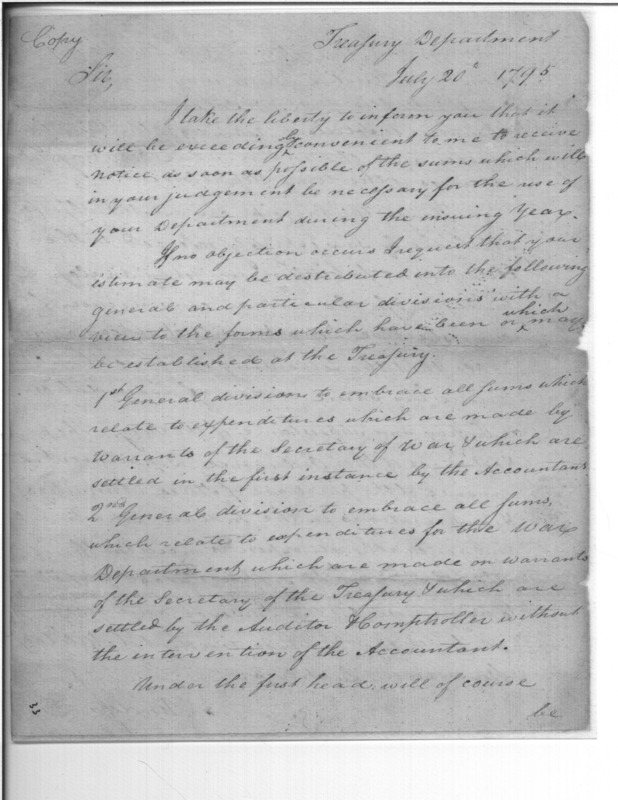 Copy
Treasury Department
July 20th 1795
Sir,
I take the liberty to inform you that it
will be exceedingly convenient to me to receive
notice as soon as possible of the sums which will
in your judgement be necessary for the use of
your Department during the insuing Year.
If no objection occurs I request that your
estimate may be distributed into the following
general and particular divisions with a
view to the forms which have been or which may
be established at the Treasury.
1st General divisions to embrace all sums which
relate to expenditures which are made by
Warrants of the Secretary of War & which are
settled in the first instance by the Accountant
2nd General division to embrace all sums,
which relate to expenditures for the War
Department, which are made on warrants
of the Secretary of the Treasury & which are
settled by the Auditor & Comptroller without
the intervention of the Accountant.
Under the first head, will of course
be
33